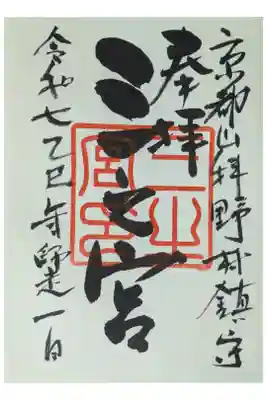 京都山科野村鎮守
奉拝
三之宮
令和七乙巳年師走一日